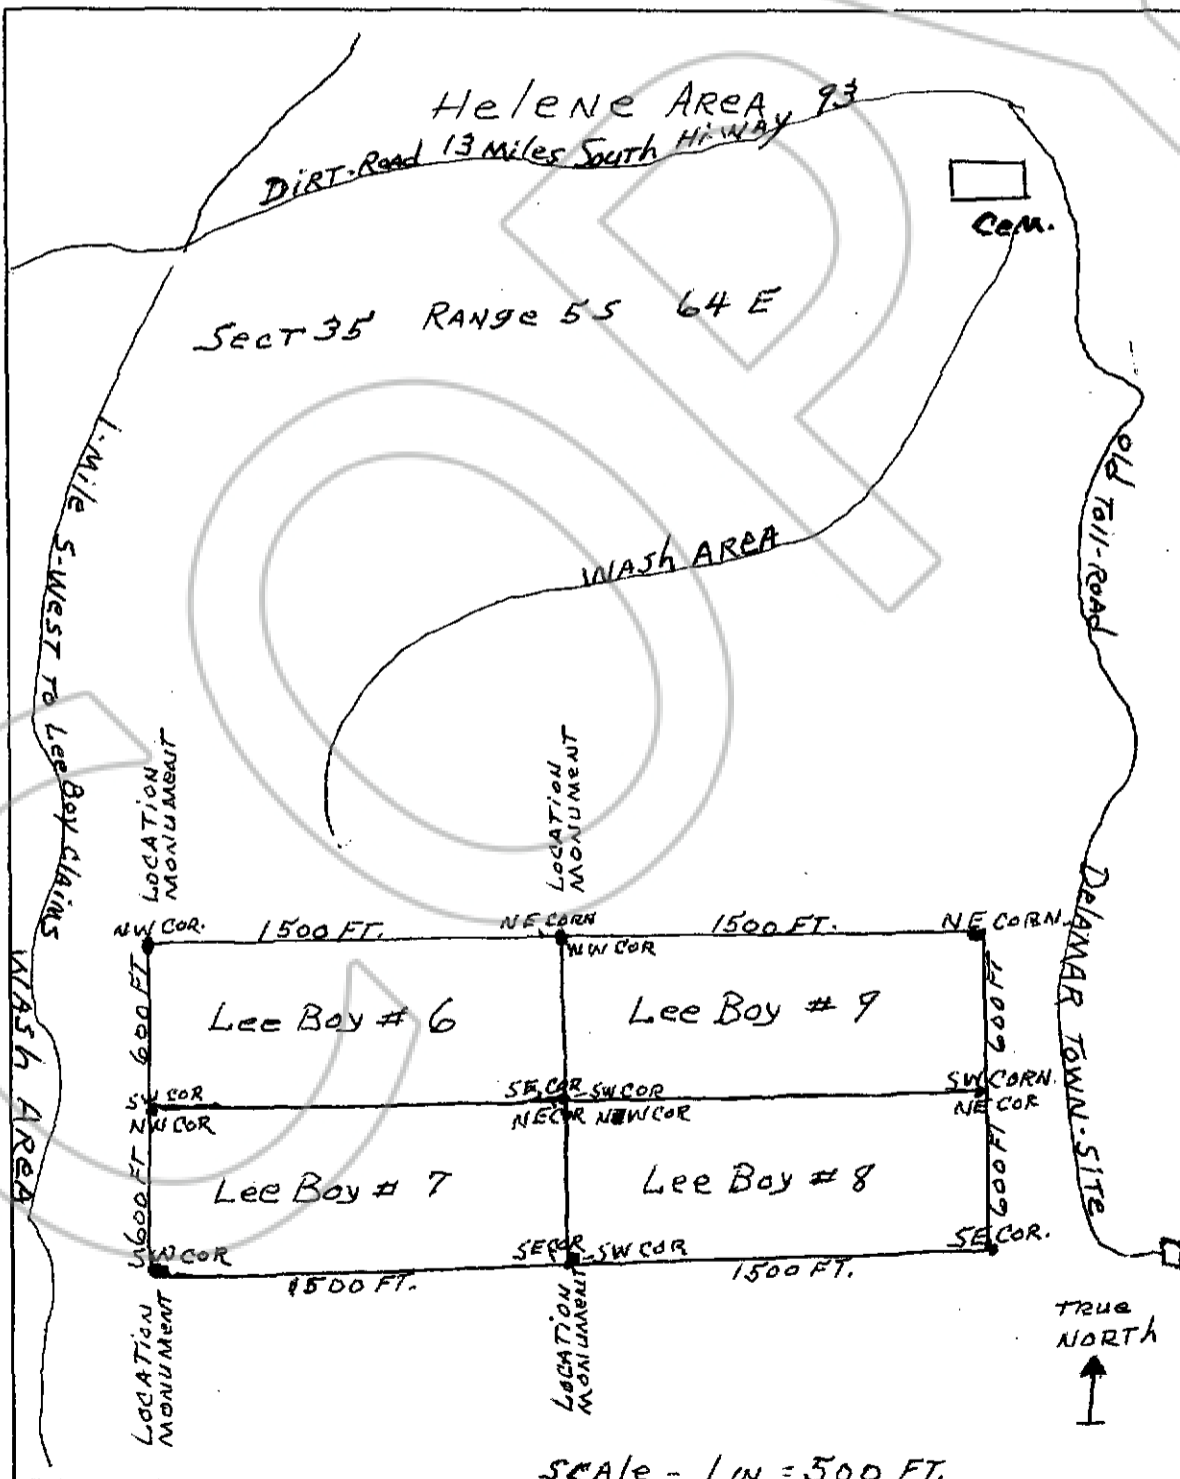 Helene Area 93
Dirt-Road 13 Miles South Hi-way
Cem.
Sect 35 Range 5 S 64 E
1-Mile S-West to Lee Boy Claims
Old Toll-Road
Wash Area
Location Monument
Location Monument
NW COR.
1500 FT.
NE CORN
NW COR
1500 FT.
NE CORN.
Delamar Town-Site
Wash Area
600 FT
Lee Boy # 6
Lee Boy # 9
600 FT
SW COR
SE COR
SW COR
SW CORN.
NW COR
NE COR
NW COR
NE COR
600 FT
Lee Boy # 7
Lee Boy # 8
600 FT
SW COR
SE COR
SW COR
SE COR.
1500 FT.
1500 FT.
Location Monument
Location Monument
True North
Scale - 1 in = 500 FT.
COPY